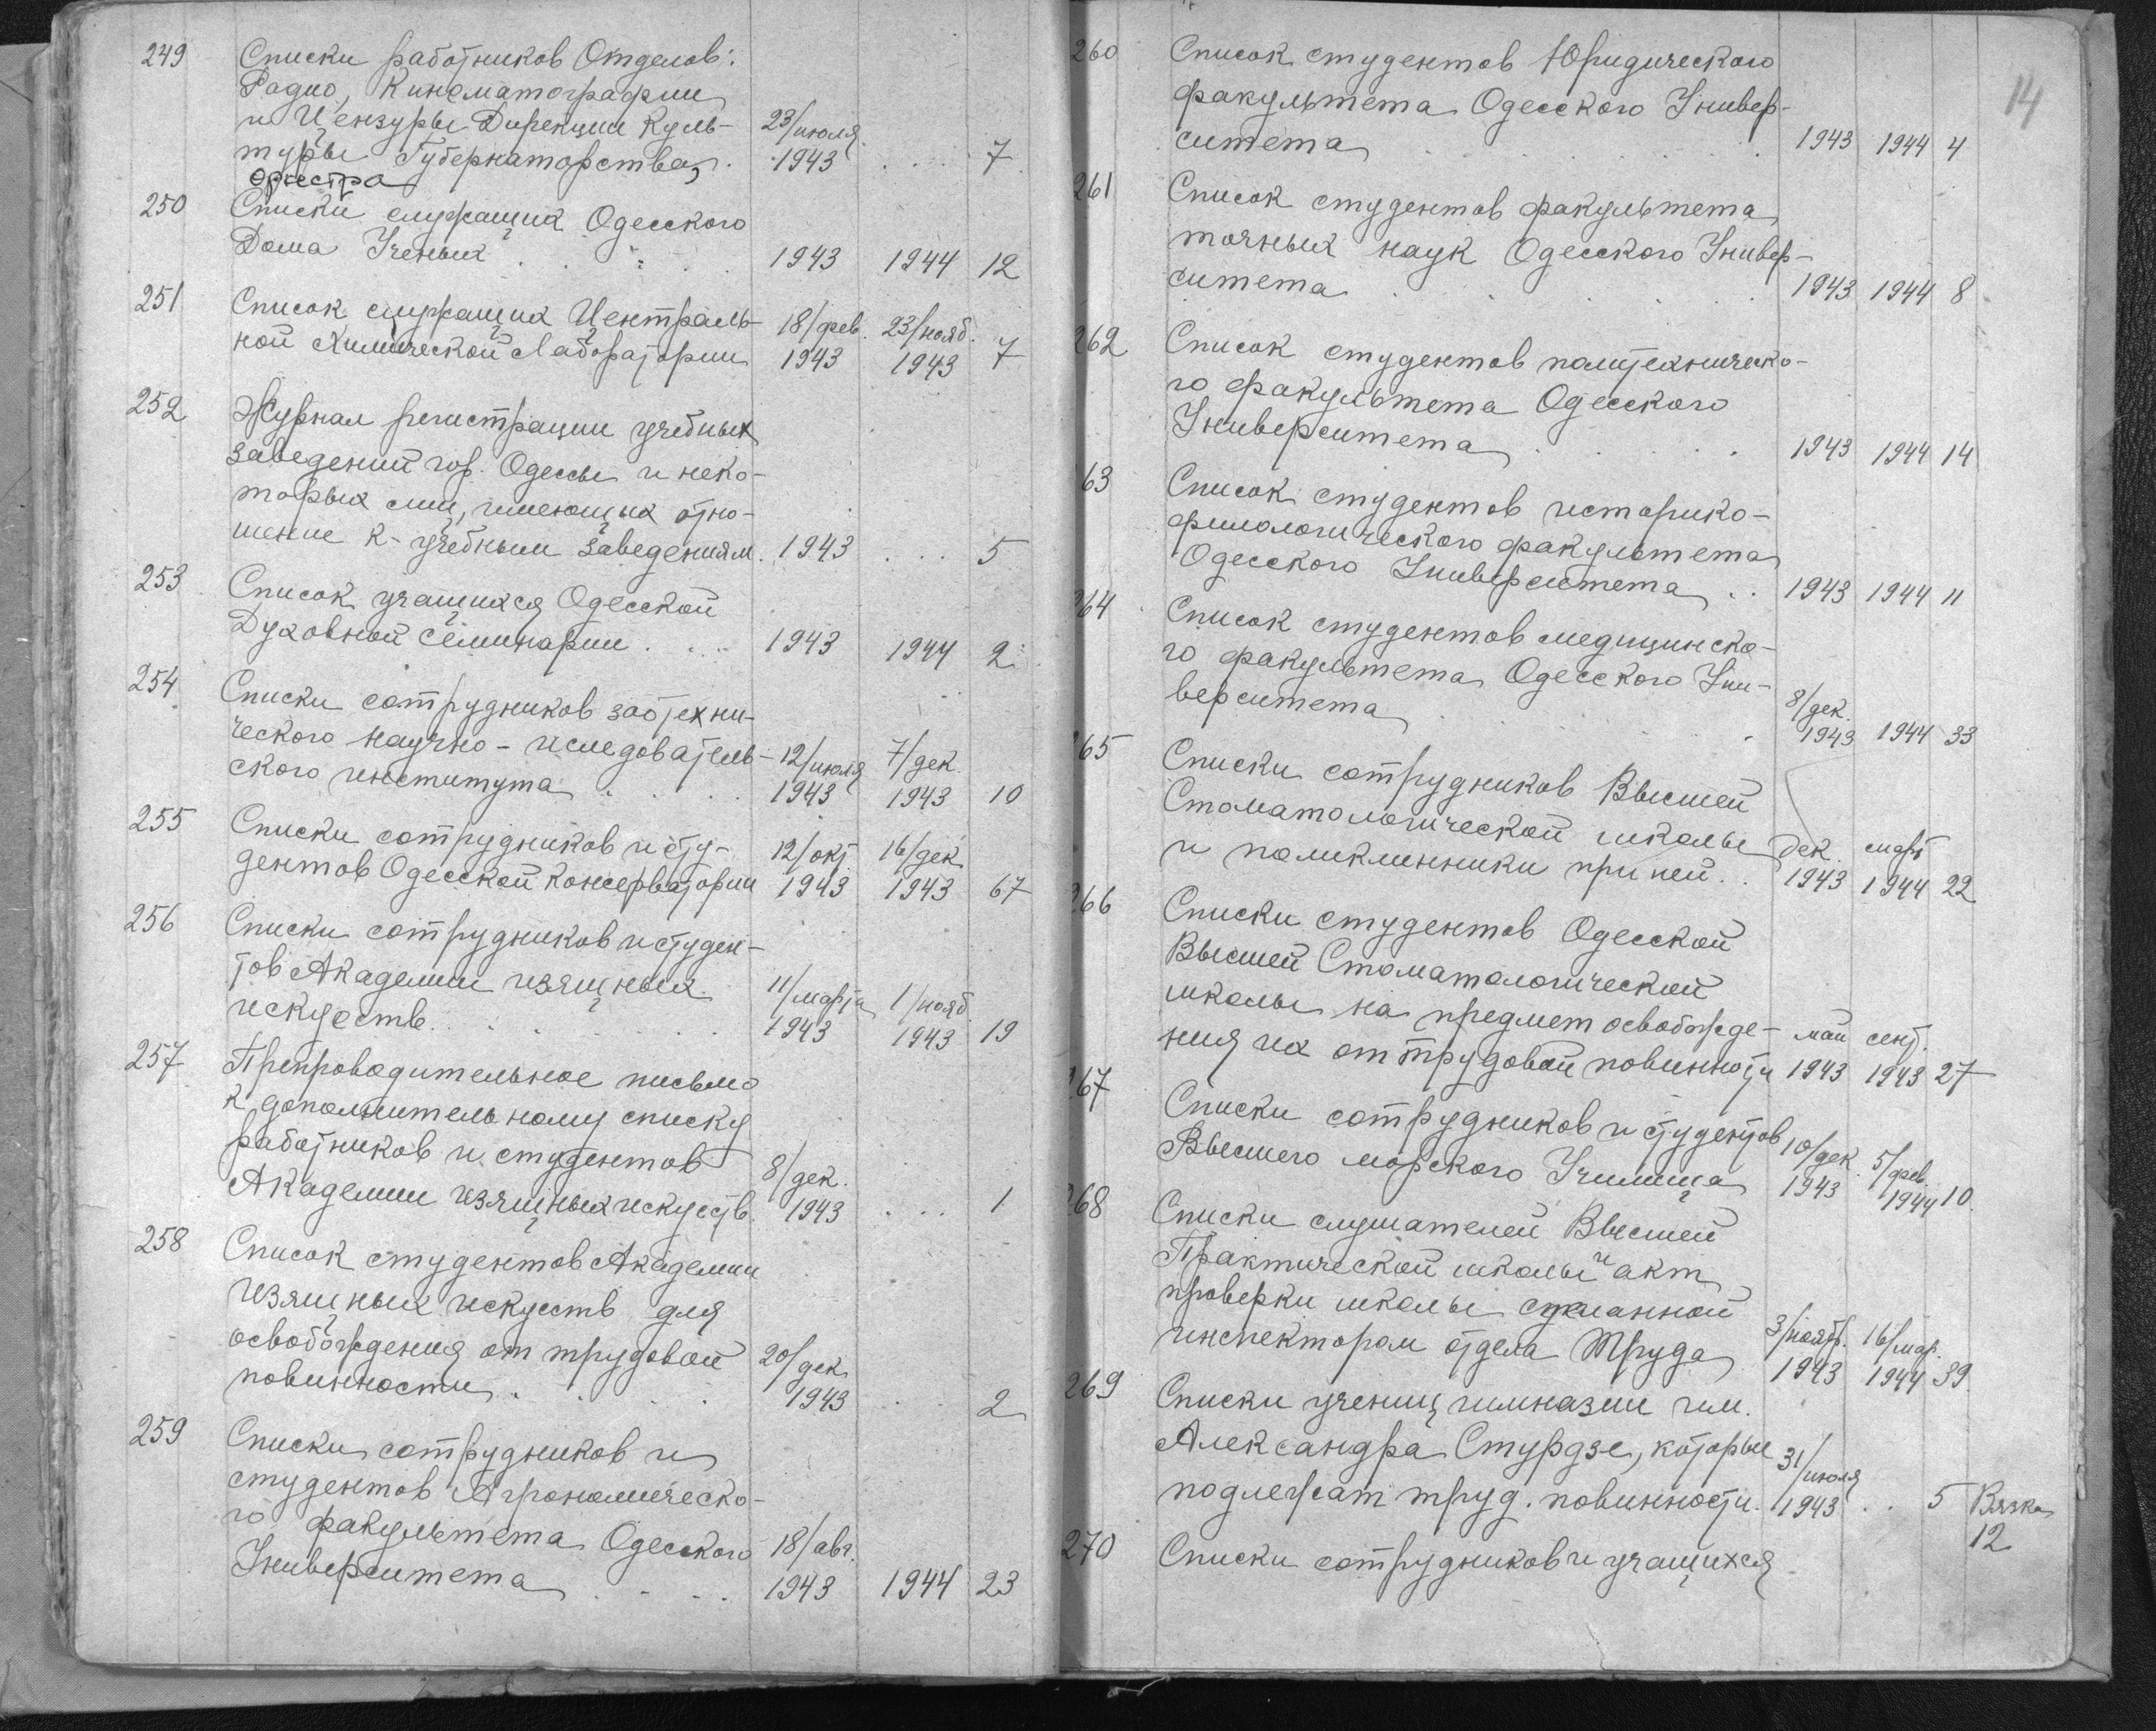 249 Списки работников Отделов:
Радио, Кинематографии
и Цензуры Дирекции Куль- 23/июля
туры Губернаторства, 1943 . . . 7
оркестра
250 Списки служащих Одесского
Дома Ученых . . . . 1943 1944 12
251 Список служащих Централь- 18/фев. 23/нояб.
ной Химической Лаборатории 1943 1943 7
252 Журнал регистрации учебных
заведений гор. Одессы и неко-
торых лиц, имеющих отно-
шение к учебным заведениям. 1943 . . . 5
253 Список учащихся Одесской
Духовной Семинарии . . . . 1943 1944 2
254 Списки сотрудников зоотехни-
ческого научно-иследователь- 12/июля 7/дек.
ского института . . . . 1943 1943 10
255 Списки сотрудников и сту- 12/окт 16/дек
дентов Одесской Консерватории 1943 1943 67
256 Списки сотрудников и студен-
тов Академии изящных 11/марта 1/нояб.
искуств . . . . . . 1943 1943 19
257 Препроводительное письмо
к дополнительному списку
работников и студентов 8/дек.
Академии изящных искуств. 1943 . . . 1
258 Список студентов Академии
изящных искусств для
освобождения от трудовой 20/дек
повинности . . . . 1943 . . 2
259 Списки сотрудников и
студентов Агрономическо-
го факультета Одесского 18/авг.
Университета . . . . 1943 1944 23
14
260 Список студентов Юридического
факультета Одесского Универ-
ситета . . . . . . 1943 1944 4
261 Список студентов факультета
точных наук Одесского Универ-
ситета . . . . . . 1943 1944 8
262 Список студентов политехническо-
го факультета Одесского
Университета . . . . . 1943 1944 14
63 Список студентов историко-
филологического факультета
Одесского Университета . . 1943 1944 11
264 Список студентов медицинско-
го факультета Одесского Уни- 8/дек.
верситета . . . . . 1943 1944 33
265 Списки сотрудников Высшей
Стоматологической школы дек. март
и поликлинники при ней . . 1943 1944 22
266 Списки студентов Одесской
Высшей Стоматологической
школы на предмет освобожде- май сент.
ния их от трудовой повинности 1943 1943 27
267 Списки сотрудников и студентов 10/дек. 5/фев.
Высшего морского Училища 1943 1944 10
268 Списки слушателей Высшей
Практической школы и акт
проверки школы сделанной
инспектором отдела Труда 3/нояб. 16/мар.
1943 1944 39.
269 Списки учениц гимназии им.
Александра Стурдзе, которые 31/июля
подлежат труд. повинности. 1943 . . 5 Вязка
12
270 Списки сотрудников и учащихся